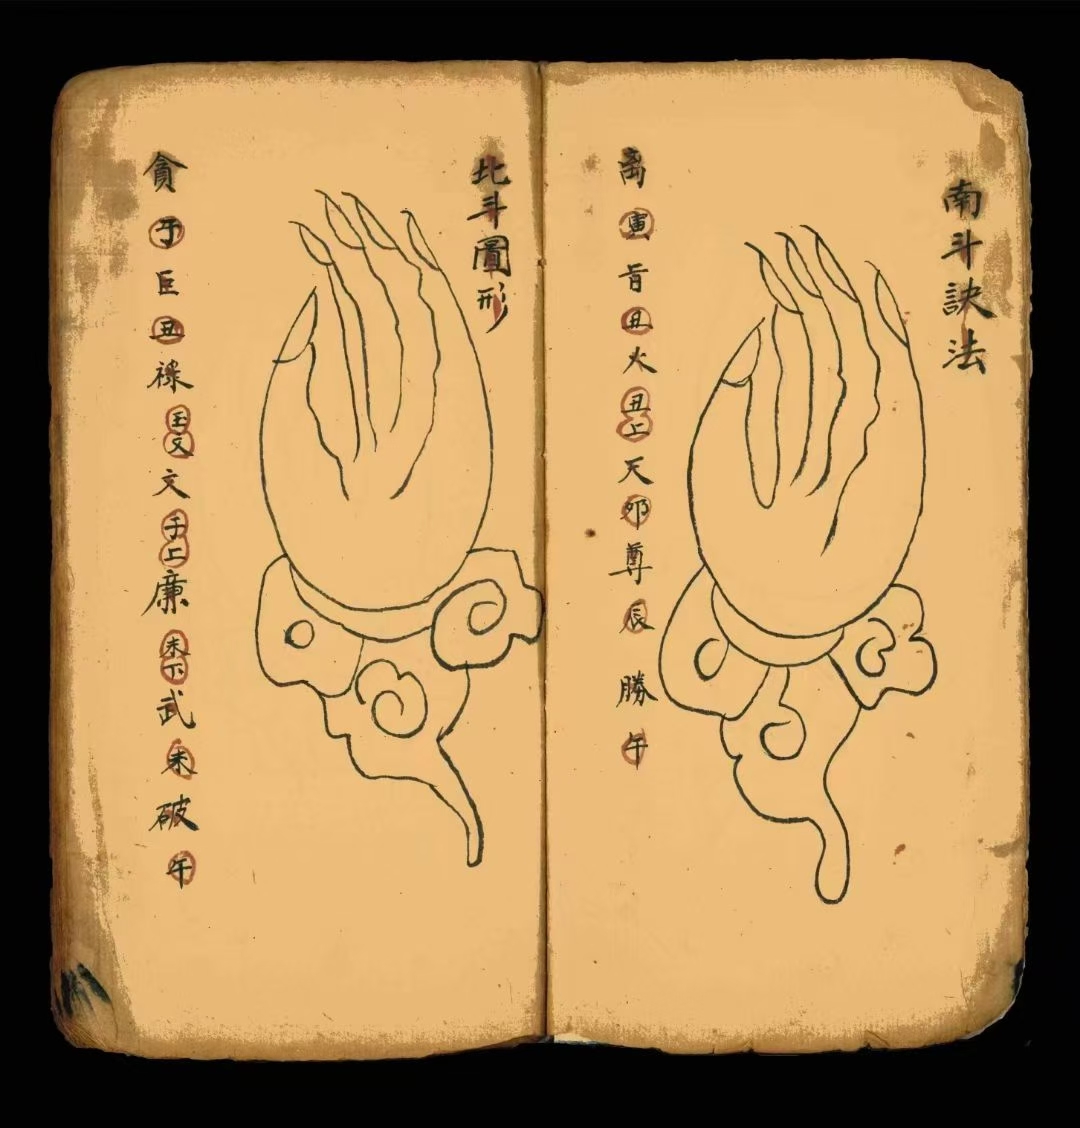 南斗訣法
禼寅肯丑火丑上天卯尊辰勝午
北斗圖形
貪子巨丑祿玉文文子上廉未下武未破午